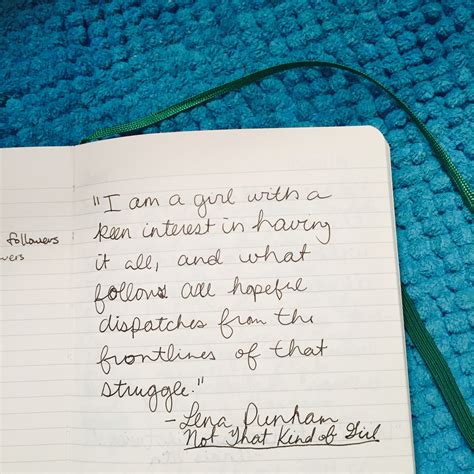 "I am a girl with a
keen interest in having
it all, and what
follows are hopeful
dispatches from the
frontlines of that
struggle."
- Lena Dunham
Not That Kind of Girl
followers